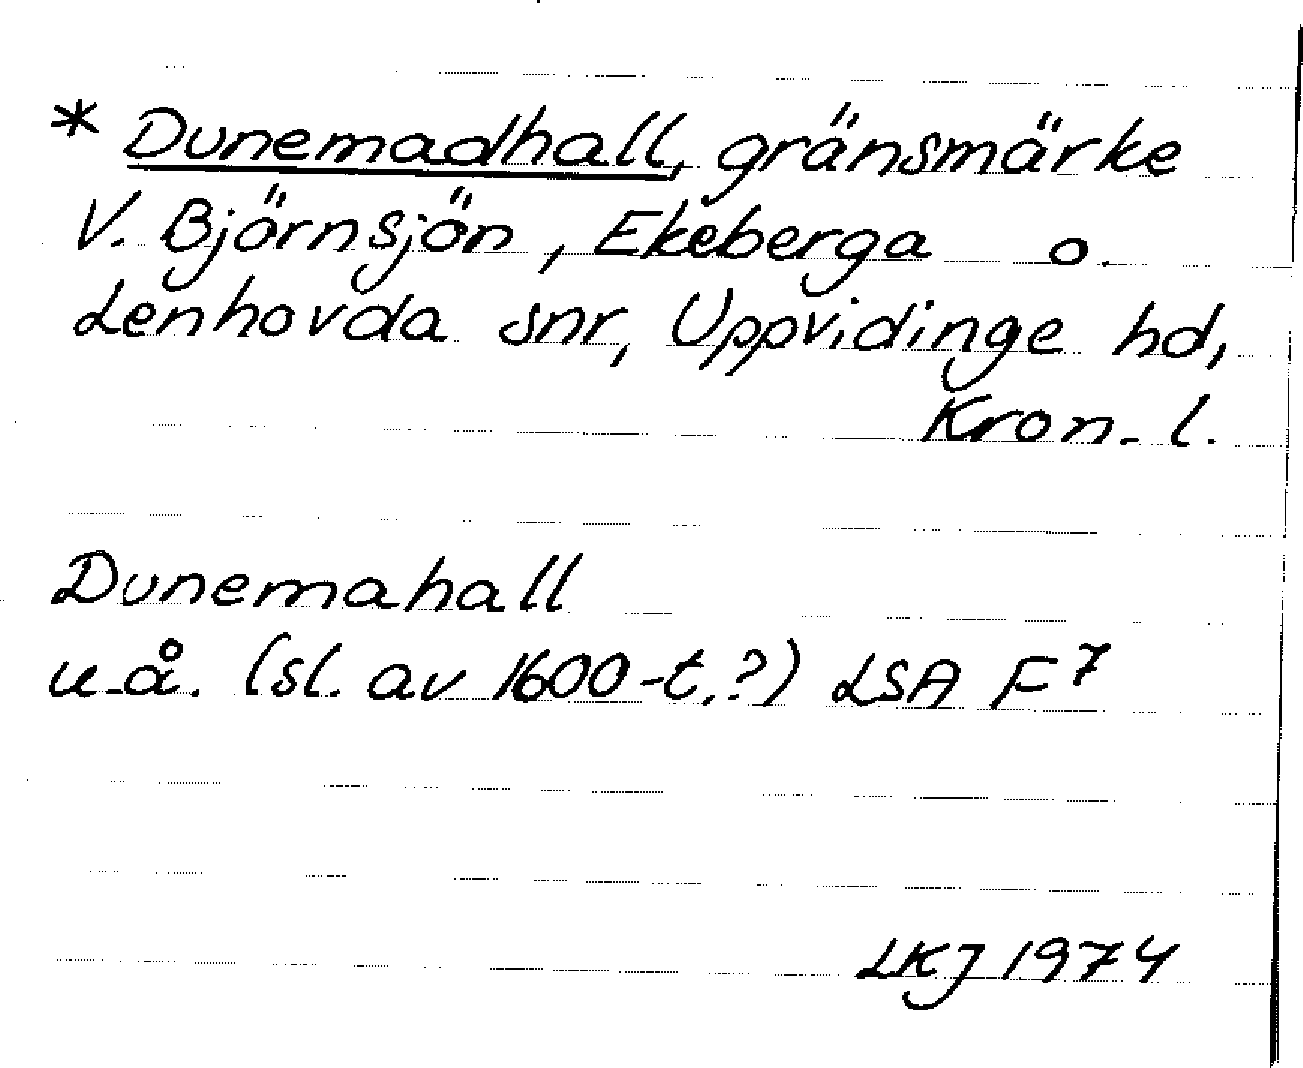 * Dunemadhall, gränsmärke
V. Björnsjön, Ekeberga o.
Lenhovda snr, Uppvidinge hd,
Kron. l.
Dunemahall
u.å. (sl. av 1600-t.?) LSA F7
LKJ 1974